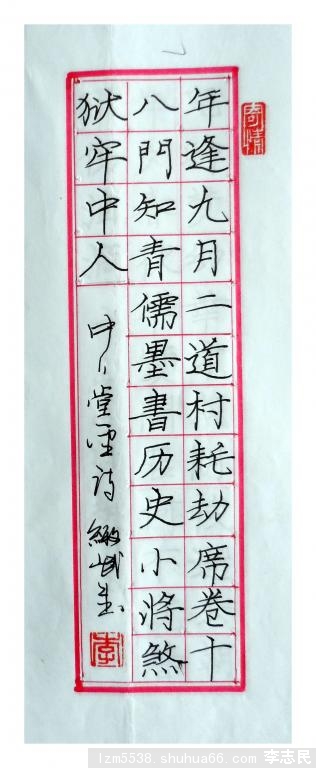 年逢九月二道村耗劫席卷十
八門知青儒墨書历史小将煞
狱牢中人
寄情
李
lzm5538.shuhua66.com 李志民